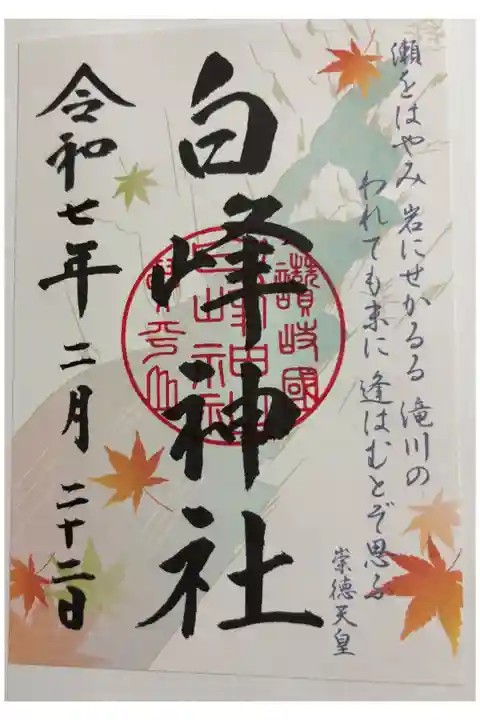 瀬をはやみ 岩にせかるる 滝川の
われても末に 逢はむとぞ思ふ
崇徳天皇
白峰神社
讚岐國
令和七年 二月 二十二日